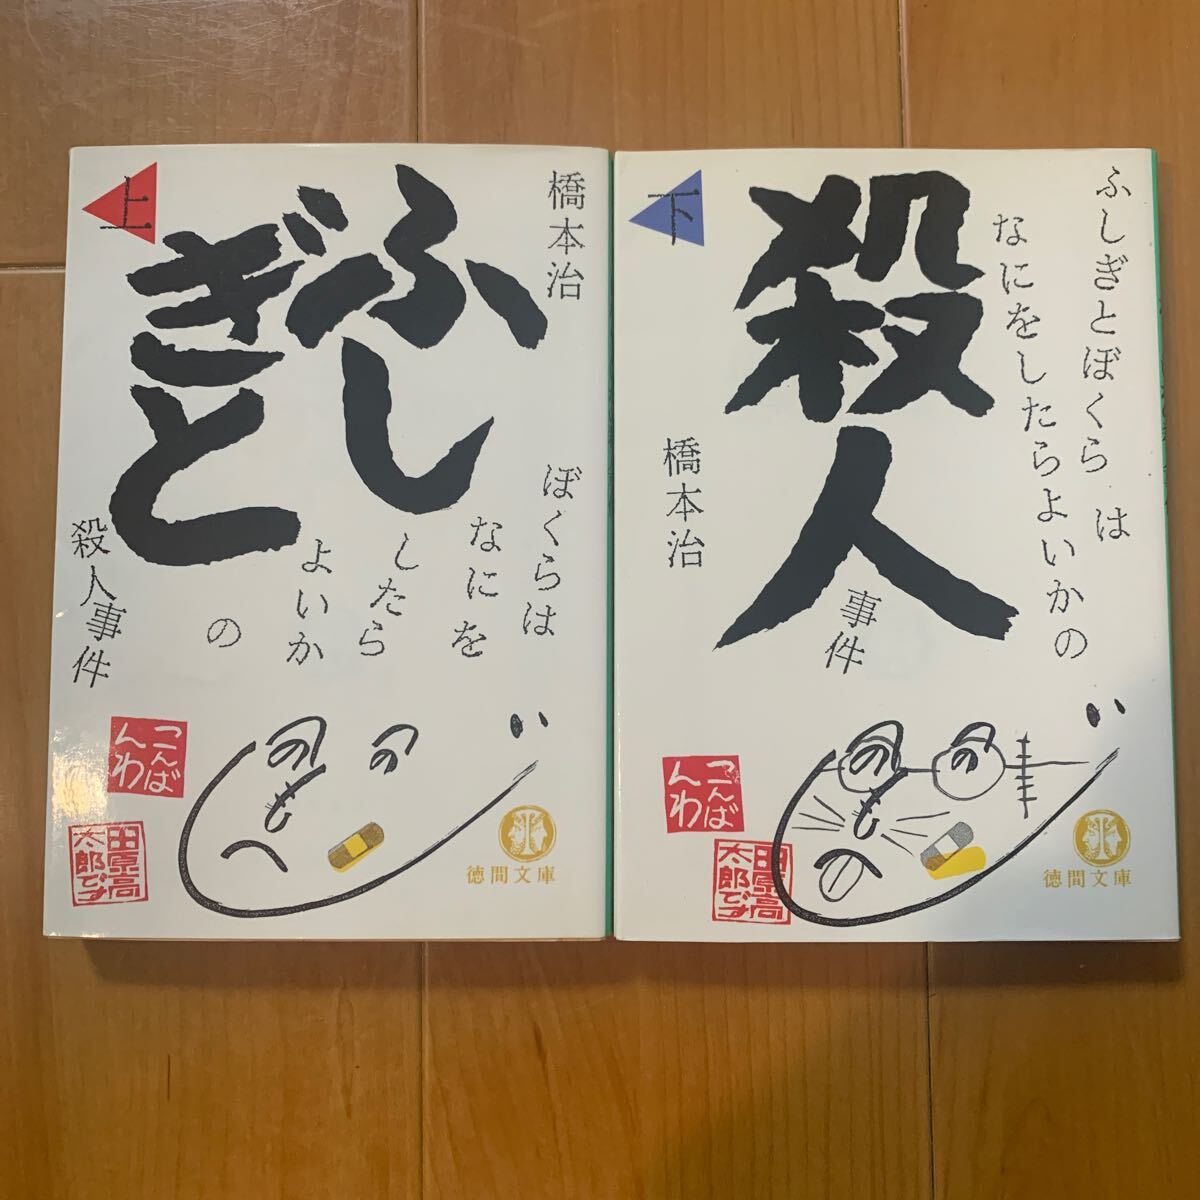 上
橋本治
ふし
ぎと
ぼくらは
なにを
したら
よいか
の
殺人事件
こんば
んわ
田原高
太郎です
徳間文庫
下
ふしぎとぼくらは
なにをしたらよいかの
殺人
事件
橋本治
こんば
んわ
田原高
太郎です
徳間文庫